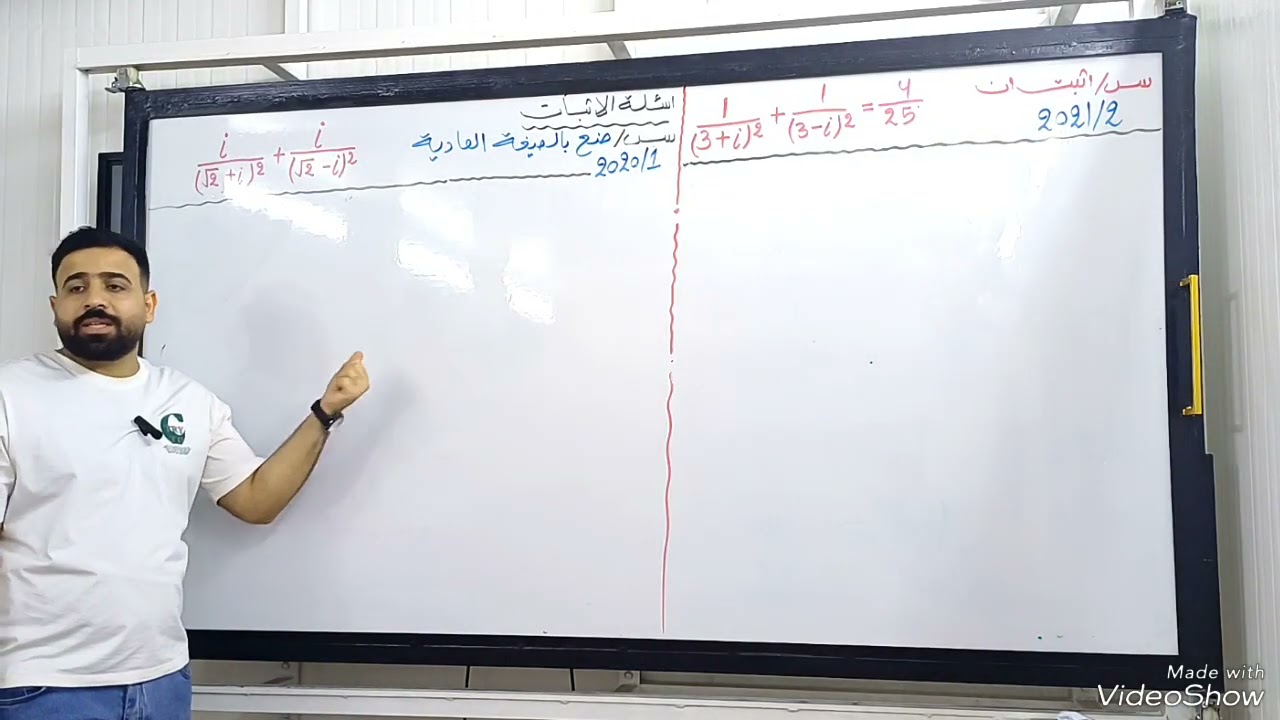 س/ اثبت ان
1/(3+i)² + 1/(3-i)² = 4/25
2021/2
اسئلة الاثبات
س/ ضع بالصيغة العادية
2020/1
i/(√2+i)² + i/(√2-i)²
Made with
VideoShow